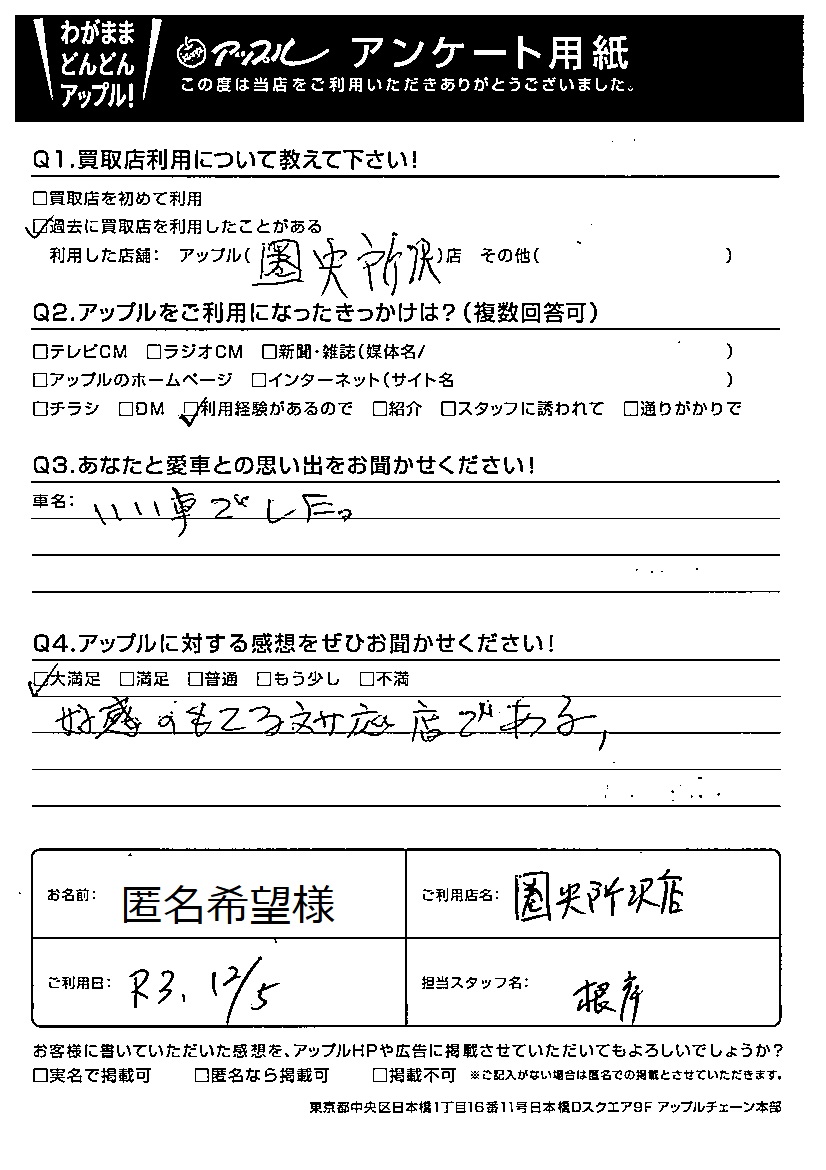 わがまま
どんどん
アップル!
アップル アンケート用紙
この度は当店をご利用いただきありがとうございました。
Q1.買取店利用について教えて下さい!
□買取店を初めて利用
☑過去に買取店を利用したことがある
利用した店舗: アップル(圏央所沢)店 その他( )
Q2.アップルをご利用になったきっかけは?(複数回答可)
□テレビCM □ラジオCM □新聞・雑誌(媒体名/ )
□アップルのホームページ □インターネット(サイト名 )
□チラシ □DM ☑利用経験があるので □紹介 □スタッフに誘われて □通りがかりで
Q3.あなたと愛車との思い出をお聞かせください!
車名: いい車でした。
Q4.アップルに対する感想をぜひお聞かせください!
☑大満足 □満足 □普通 □もう少し □不満
好感のもてる対応店である,
お名前: 匿名希望様
ご利用店名: 圏央所沢店
ご利用日: R3. 12/5
担当スタッフ名: 根岸
お客様に書いていただいた感想を、アップルHPや広告に掲載させていただいてもよろしいでしょうか?
□実名で掲載可 □匿名なら掲載可 □掲載不可 ※ご記入がない場合は匿名での掲載とさせていただきます。
東京都中央区日本橋1丁目16番11号日本橋Dスクエア9F アップルチェーン本部